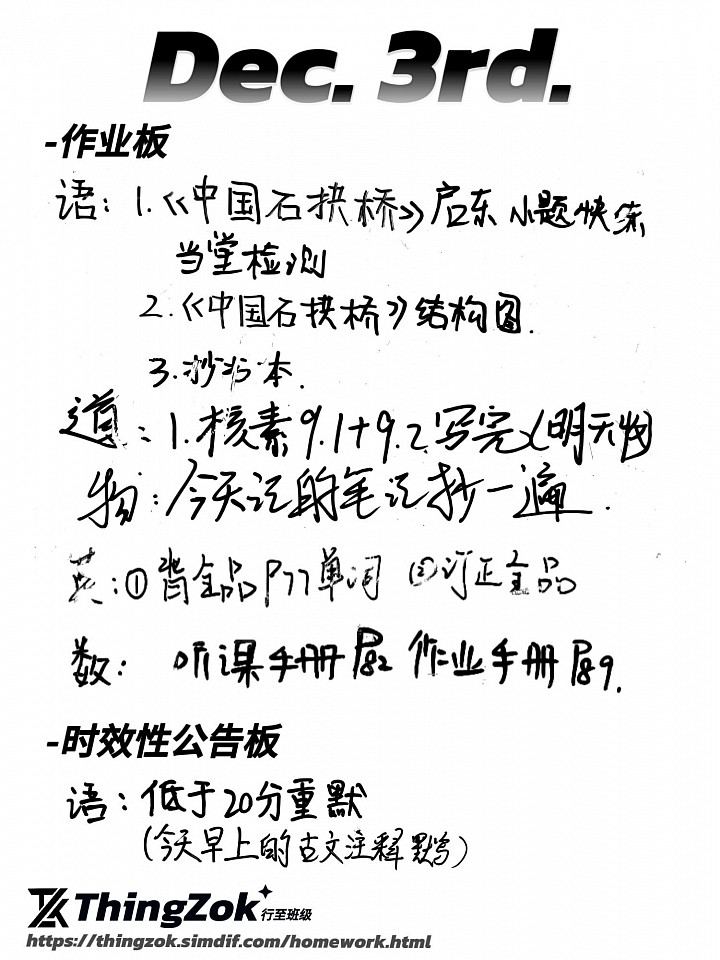 Dec. 3rd.
-作业板
语：1.《中国石拱桥》启东小题快练
当堂检测
2.《中国石拱桥》结构图.
3.抄 本.
道：1.核素9.1+9.2写完(明天收)
物：今天记的笔记抄一遍.
英：①背全品P77单词 ②订正全品
数：听课手册P82 作业手册P89.
-时效性公告板
语：低于20分重默
(今天早上的古文注释默写)
ThingZok 行至班级
https://thingzok.simdif.com/homework.html